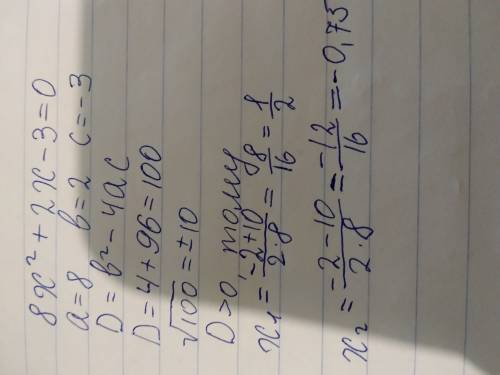 8x² + 2x - 3 = 0
a = 8 b = 2 c = -3
D = b² - 4ac
D = 4 + 96 = 100
√100 = ±10
D > 0, тому
x₁ = (-2+10)/(2·8) = 8/16 = 1/2
x₂ = (-2-10)/(2·8) = -12/16 = -0,75